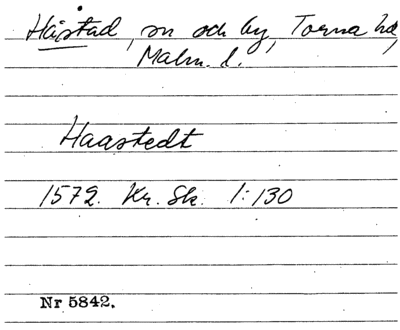 Håstad, sn och by, Torna hd,
Malm. l.
Haastedt
1572. Kr. Sk. 1:130
Nr 5842.